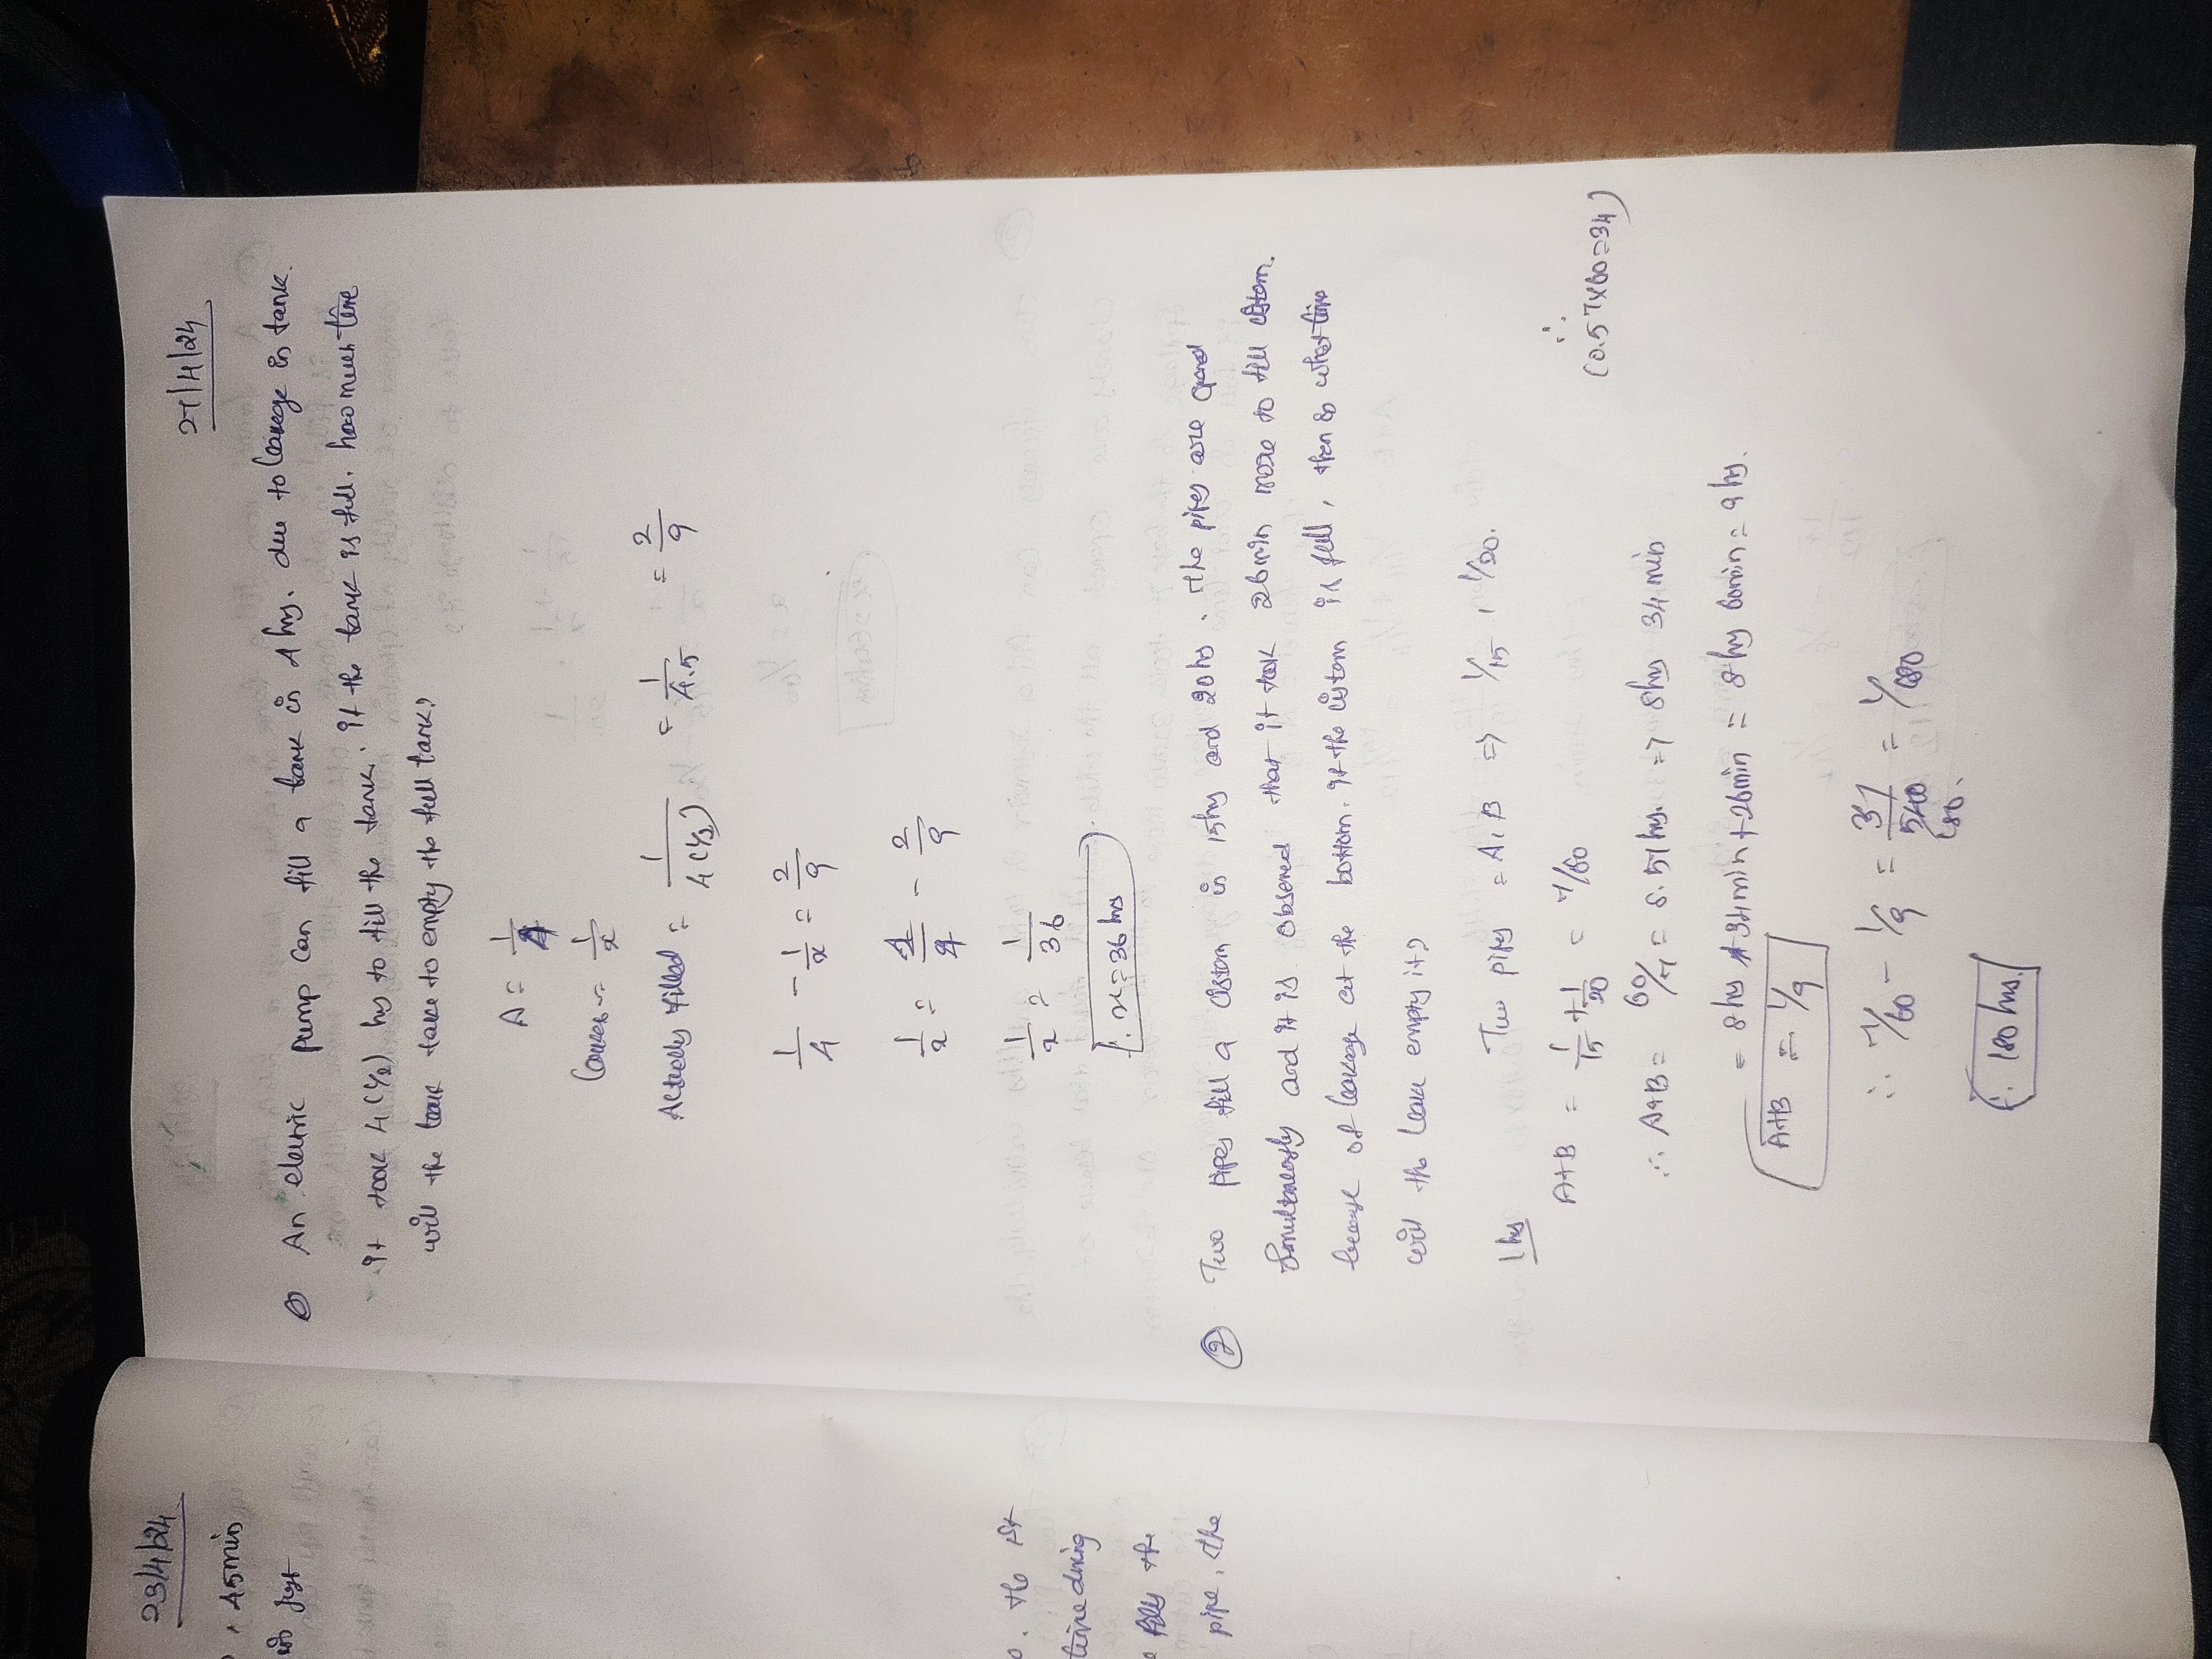 23/4/24
45min
is just
the 1st
time during
fills the
pipe, the
27/4/24
① An electric pump can fill a tank in 4 hrs. due to leakage in tank.
It took 4(1/2) hrs to fill the tank. If the tank is full. how much time
will the leak take to empty the full tank?
A = 1/4
Leakes = 1/x
Actually filled = 1/4(1/2) = 1/4.5 = 2/9
1/4 - 1/x = 2/9
1/x = 1/4 - 2/9
1/x = 1/36
∴ x = 36 hrs
② Two pipes fill a cistern in 15hrs and 20hrs. The pipes are opened
simultaneously and it is observed that it took 26min more to fill cistern.
because of leakage at the bottom. If the cistern is full, then in what time
will the leak empty it?
1 hrs
Two pipes = A, B => 1/15, 1/20.
A+B = 1/15 + 1/20 = 7/60
∴
(0.57x60=34)
∴ A+B = 60/7 = 8.57hrs. => 8hrs 34 min
= 8 hrs + 34min + 26min = 8 hrs 60min = 9 hrs.
A+B = 1/9
∴ 7/60 - 1/9 = 31/540 = 1/180
180.
∴ 180 hrs.